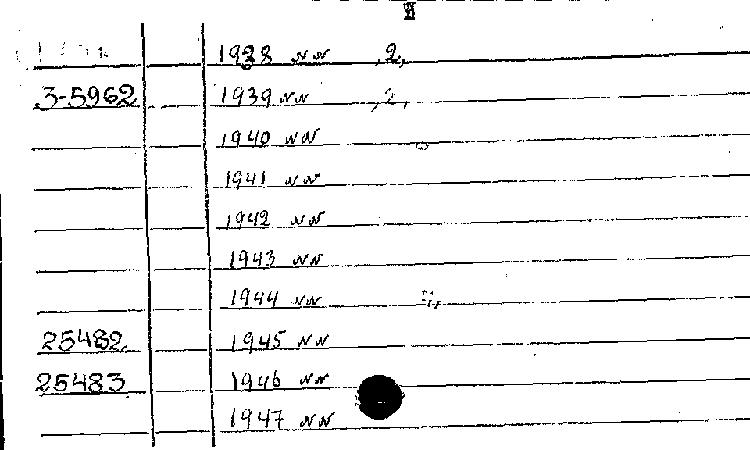 1938 NN ,2,
3-5962 1939 NN ,2,
1940 NN
1941 NN
1942 NN
1943 NN
1944 NN
25482 1945 NN
25483 1946 NN
1947 NN